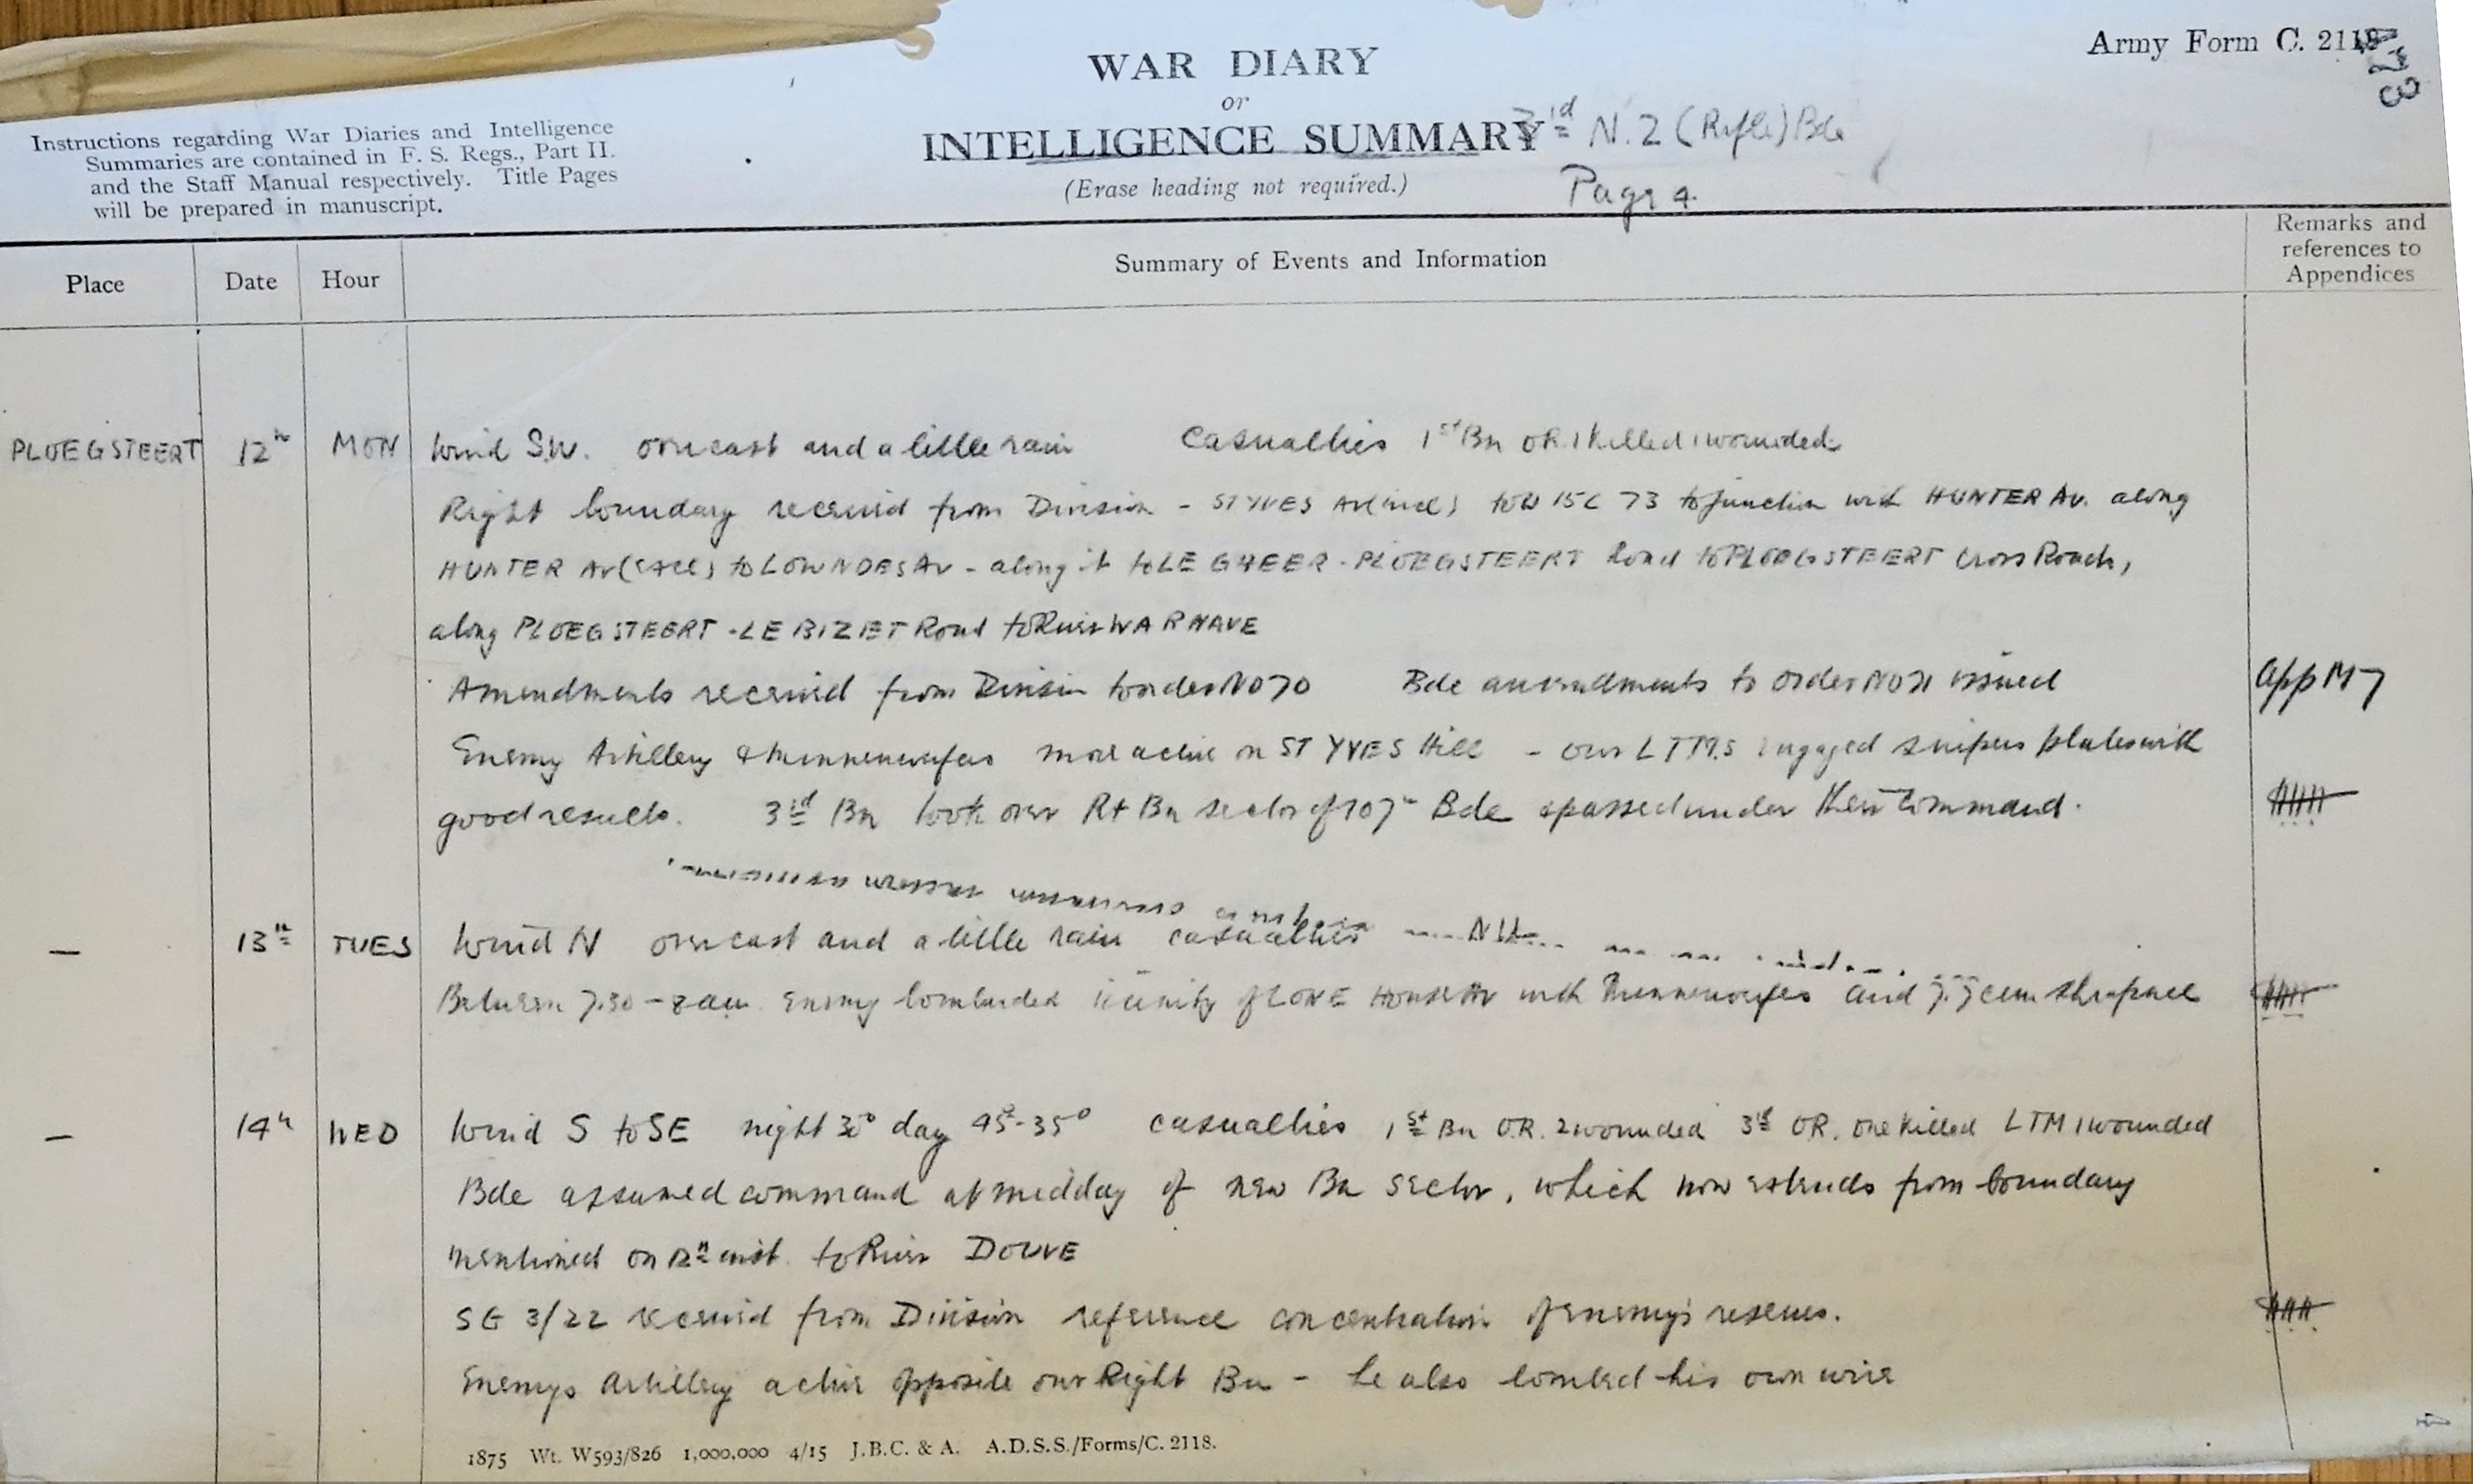 Army Form C. 2118
473
WAR DIARY
or
INTELLIGENCE SUMMARY
(Erase heading not required.)
3rd N.Z (Rifle) Bde
Page 4.
Instructions regarding War Diaries and Intelligence
Summaries are contained in F. S. Regs., Part II.
and the Staff Manual respectively. Title Pages
will be prepared in manuscript.
Place Date Hour Summary of Events and Information Remarks and references to Appendices
PLOEGSTEERT 12th MON Wind S.W. overcast and a little rain Casualties 1st Bn OR 1 killed 1 wounded
Right boundary received from Division - ST YVES Av (incl) to U 15 C 73 to junction with HUNTER Av. along
HUNTER Av (excl) to LOWNDES Av - along it to LE GHEER - PLOEGSTEERT Road to PLOEGSTEERT Cross Roads,
along PLOEGSTEERT - LE BIZET Road to River WARNAVE
Amendments received from Division to order No 70 Bde amendments to order No 71 issued App M7
Enemy Artillery & Minnenwerfers more active on ST YVES Hill - our LTMs engaged snipers plates with
good results. 3rd Bn took over Rt Bn sector of 107th Bde & passed under their command.
— 13th TUES Wind N overcast and a little rain casualties Nil
Between 7.30 - 8 am Enemy bombarded vicinity of LONE HOUSE AV with Minnenwerfers and 7.7 cm shrapnel
— 14th WED Wind S to SE night 30° day 45°-35° casualties 1st Bn O.R. 2 wounded 3rd OR. one killed LTM 1 wounded
Bde assumed command at midday of new Bn sector, which now extends from boundary
mentioned on 12th inst. to River DOUVE
SG 3/22 received from Division reference concentration of enemy's reserves.
Enemys Artillery active opposite our Right Bn - he also bombed his own wire
1875 Wt. W593/826 1,000,000 4/15 J.B.C. & A. A.D.S.S./Forms/C. 2118.